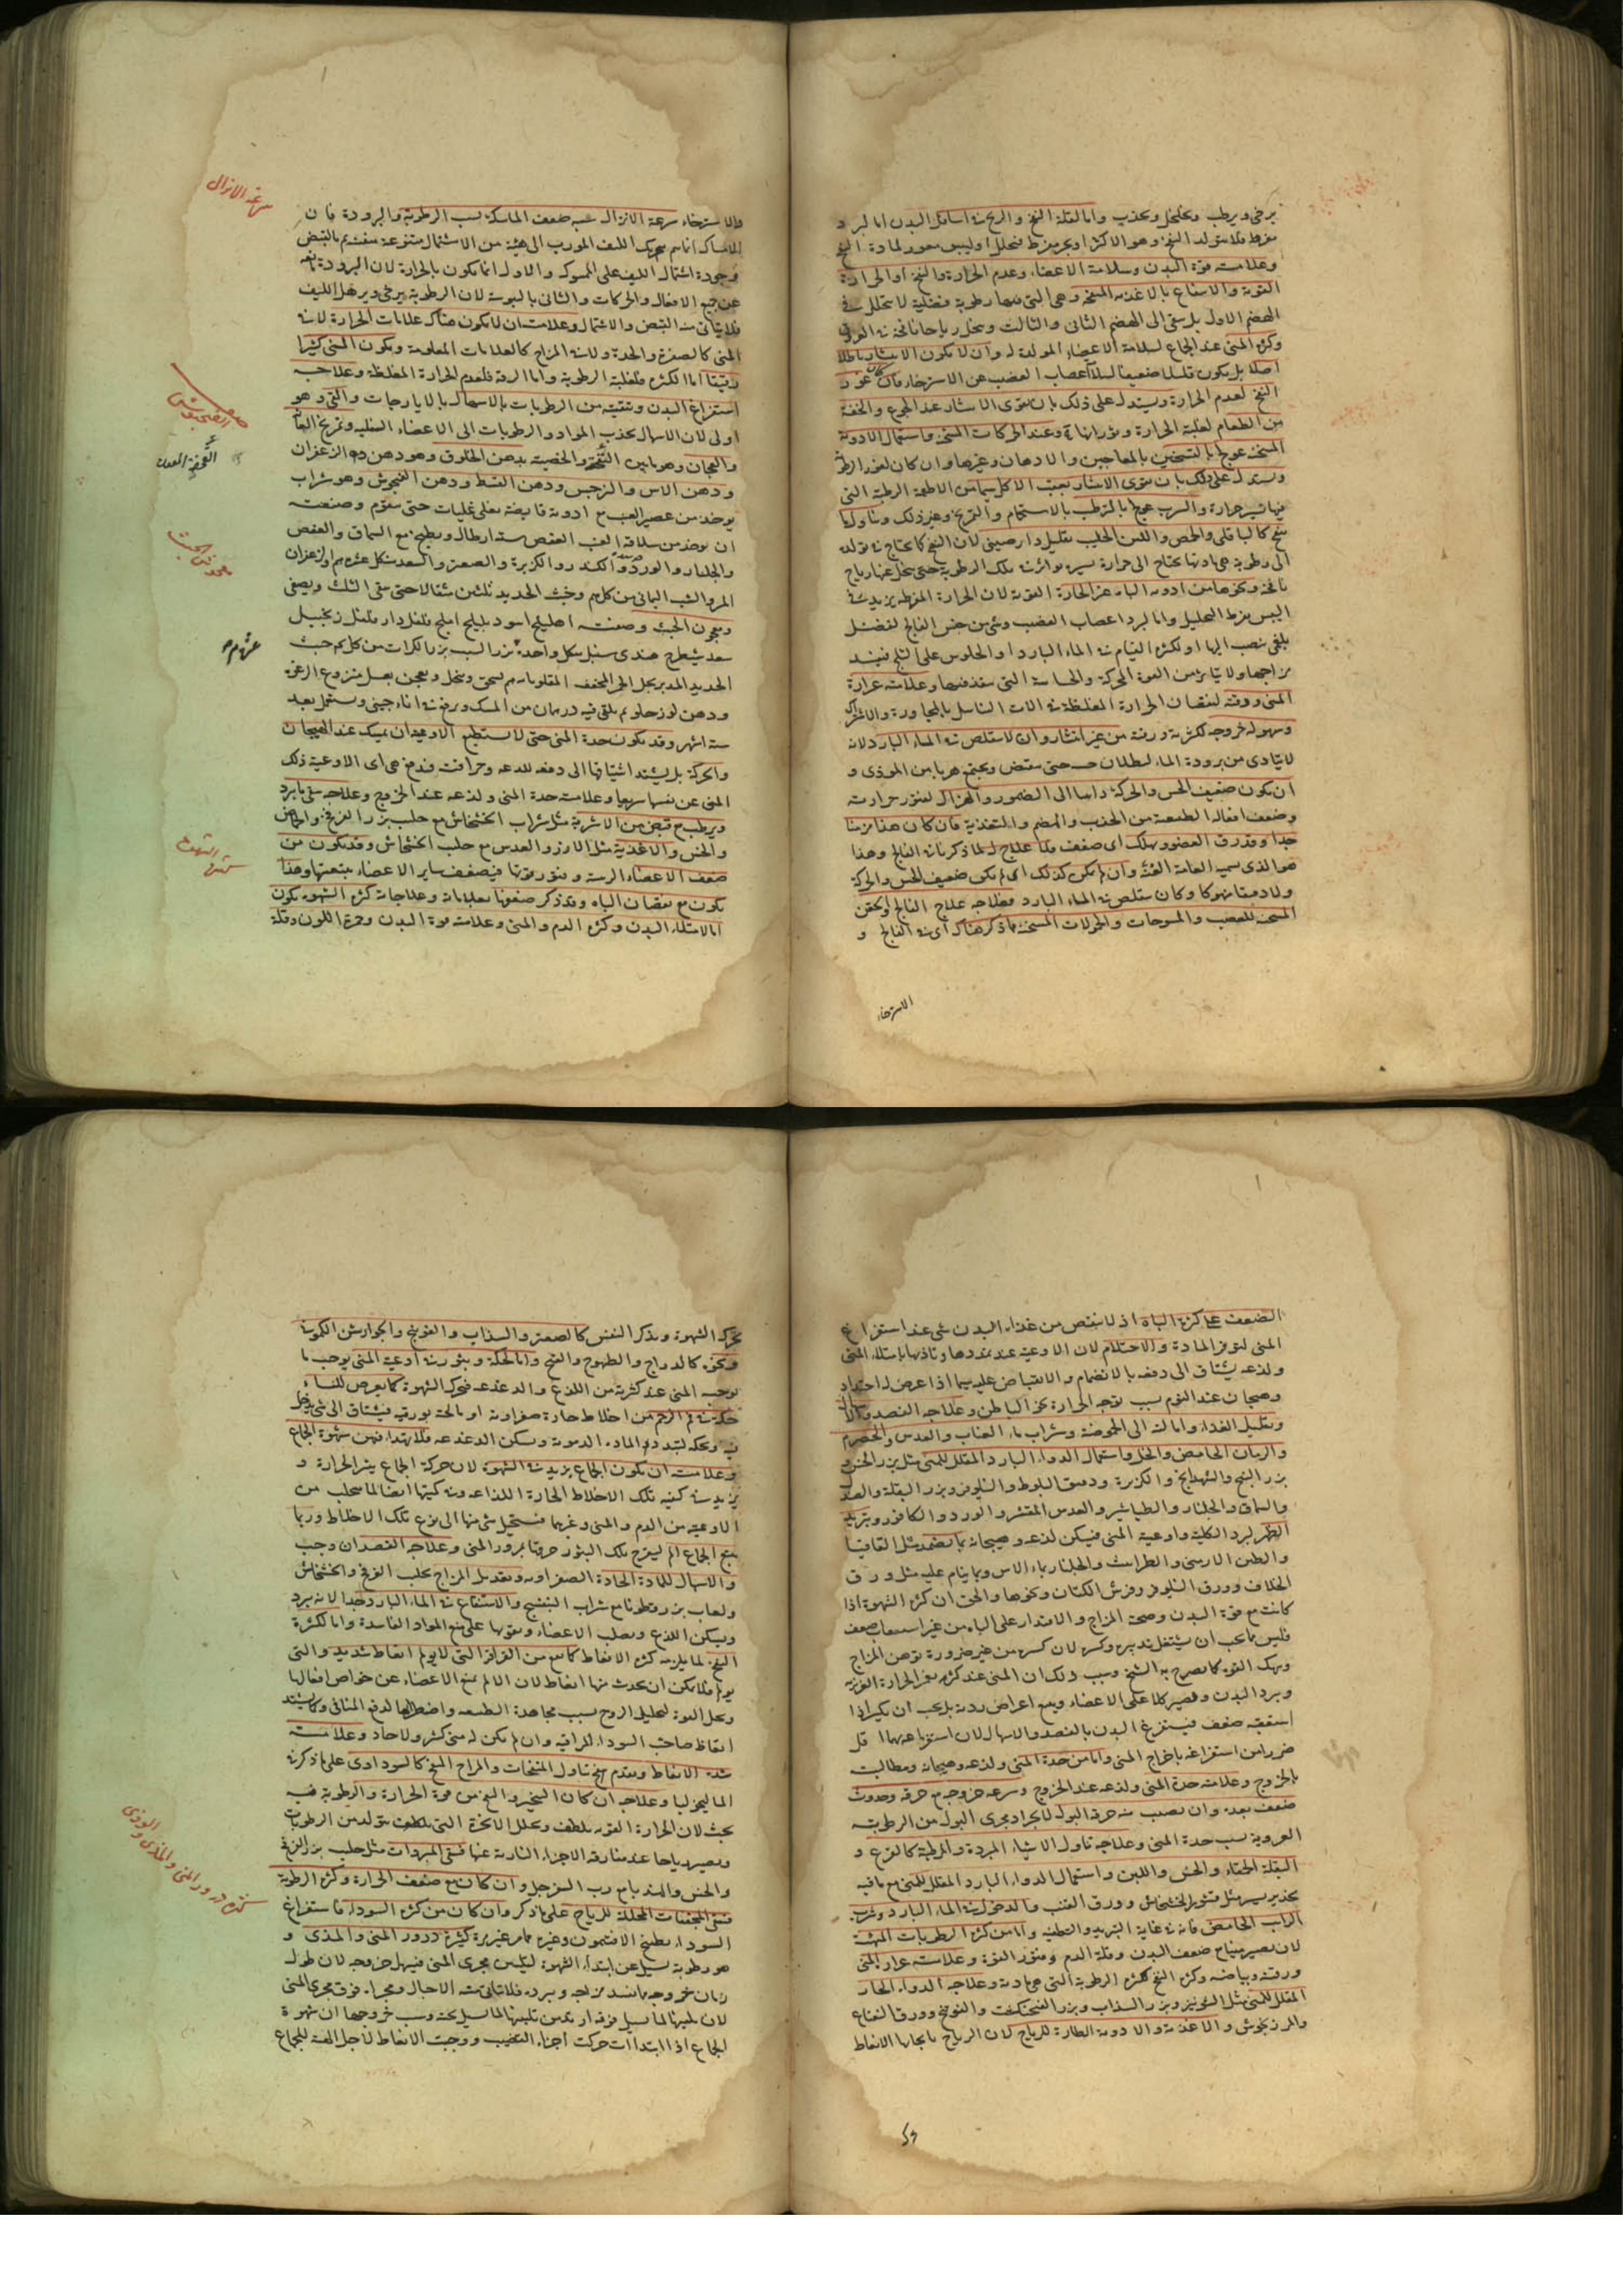 يرخى ويرطب ويخلخل ويجذب واما لقلة النفخ والريح فى اسافل البدن اما لبرد
مفرط فلا يتولد النفخ وهو الاكثر او بحر مفرط فيحلل اوليبس معوز لمادة النفخ
وعلامته قوة البدن وسلامة الاعضاء وعدم الحرارة والنفخ او الحرارة
القوية والانتفاع بالاغذية المنفخة وهى التى فيها رطوبة فضلية لا تتحلل فى
الهضم الاول بل تبقى الى الهضم الثانى والثالث وتتحلل رياحا نافخة فى العروق
وكثرة المنى عند الجماع لسلامة الاعضاء المولدة له وان لا يكون الانتشار باطلا
اصلا بل يكون قليلا ضعيفا لسلامة اعصاب القضيب عن الاسترخاء فان كان عوز
النفخ لعدم الحرارة ويستدل على ذلك بان يقوى الانتشار عند الجوع والخفة
من الطعام لغلبة الحرارة وثورانها وعند الحركات المسخنة واستعمال الادوية
المسخنة عولج بالتسخين بالمعاجين والادهان وغيرها وان كان لعوز الرطوبة
ويستدل على ذلك بان يقوى الانتشار بعقب الاكل سيما من الاطعمة الرطبة التى
فيها يسير حرارة والشرب عولج بالترطيب بالاستحمام والتمريخ وغير ذلك وتناول ما
ينفخ كالباقلى والحمص واللبن الحليب بقليل دارصينى لان النفخ كما يحتاج فى تولده
الى رطوبة هى مادتها يحتاج الى حرارة يسيرة توثر فى تلك الرطوبة حتى يتحلل عنها رياح
نافخة ونحوها من ادوية الباه غير الحارة القوية لان الحرارة المفرطة يزيد فى
اليبس بفرط التحليل واما لبرد اعصاب القضيب وشىء من جنس الفالج لفضل
بلغمى ينصب اليها او لكثرة القيام فى الماء البارد او الجلوس على الثلج فيفسد
مزاجها ولا يتاثر من القوة المحركة والحساسة التى تنفذ فيها وعلامته غزارة
المنى ورقته لنقصان الحرارة المغلظة فى الات التناسل بالمجاورة والاشتراك
وسهولة خروجه لكثرته ورقته من غير انتشار وان لا يتقلص فى الماء البارد لانه
لا يتاذى من برودة الماء لبطلان حسه حتى ينقبض ويجتمع هربا من الموذى و
ان يكون ضعيف الحس والحركة ذاهبا الى الضمور والهزال لفتور حرارته
وضعف افعاله الطبيعية من الجذب والهضم والتغذية فان كان هذا مزمنا
جدا وقد رق العضو وهلك اى ضعف فلا علاج له لما ذكرنا فى الفالج وهذا
هو الذى يسميه العامة العنة وان لم يكن كذلك اى لم يكن ضعيف الحس والحركة
ولا دقيقا منهوكا وكان يتقلص فى الماء البارد فعلاجه علاج الفالج والحقن
المسخنة للعصب والمسوحات والحمولات المسخنة مما ذكر هناك اى فى الفالج و
الاسترخاء
والاسترخاء سرعة الانزال سببه ضعف الماسكة بسبب الرطوبة والبرودة فان
الامساك انما يتم بتحريك الليف المورب الى هيئة من الاشتمال متنوعة متفننة بالقبض
وجودة اشتمال الليف على الممسوك والاول انما يكون بالحرارة لان البرودة
عن جميع الافعال والحركات والثانى باليبوسة لان الرطوبة يرخى ويرهل الليف
فلا يتاتى منه القبض والاشتمال وعلامته ان لا يكون هناك علامات الحرارة لانه
المنى كالصفرة والحدة ولا فى المزاج كالعلامات المعلومة ويكون المنى كثيرا
رقيقا اما الكثرة فلغلبة الرطوبة واما الرقة فلعدم الحرارة المغلظة وعلاجه
استفراغ البدن وتنقيته من الرطوبات بالاسهال بالايارجات والقى وهو
اولى لان الاسهال يجذب المواد والرطوبات الى الاعضاء السفلية وتمريخ العانة
والعجان وهو ما بين الفقحة والخصية بدهن الخلوق وهو دهن فيه الزعفران
ودهن الاس والنرجس ودهن القسط ودهن الفنجوش وهو شراب
يوخذ من عصير العنب مع ادوية قابضة يغلى غليات حتى يتقوم وصنعته
ان يوخذ من سلاقة العنب العفص ستة ارطال ويطبخ مع السماق والعفص
والجلنار والورد والكندر والكزبرة والصعتر والسعد من كل عشرة دراهم والزعفران
المر والشب اليمانى من كل وخبث الحديد ثلثين مثقالا حتى يبقى الثلث ويصفى
ومعجون الخبث وصنعته اهليلج اسود بليلج املج فلفل دار فلفل زنجبيل
سعد شيطرج هندى سنبل من كل واحد بزر الشبت بزر الكراث من كل خبث
الحديد المدبر بخل الخمر المجفف المقلو يدق ويسحق وينخل ويعجن بعسل منزوع الرغوة
ودهن لوز حلو ثم يلقى فيه درهمان من المسك ويرفع فى اناء صينى ويستعمل بعد
ستة اشهر وقد يكون لحدة المنى حتى لا يستطيع الاوعية ان يمسك عند الهيجان
والحركة بل يشتد اشتياقها الى دفعه للذعه وحرافته فيدفع هى اى الاوعية ذلك
المنى عن نفسها سريعا وعلامته حدة المنى ولذعه عند الخروج وعلاجه سقى ما يبرد
ويرطب مع قبض من الاشربة مثل شراب الخشخاش مع حليب بزر الفرفخ والحماض
والخس والاغذية مثل الارز والعدس مع حليب الخشخاش وقد يكون من
ضعف الاعضاء الرئيسة وفتور قوتها فيضعف ساير الاعضاء بتبعيتها وهذا
يكون مع نقصان الباه وقد ذكر ضعفها بعلاماته وعلاجاته كثرة الشهوة يكون
اما لامتلاء البدن وكثرة الدم والمنى وعلامته قوة البدن وحمرة اللون وقلة
سرعة الانزال
عشرة دراهم
كثرة الشهوة
الضعف على كثرة الباه اذ لا ينقص من غذاء البدن شى عند استفراغ
المنى لتوفر المادة والاحتلام لان الاوعية عند تمددها وتاذيها بامتلاء المنى
ولذعه يشتاق الى دفعه بالانضمام والانقباض عليه سيما اذا عرض له احتداد
وهيجان عند النوم بسبب توجه الحرارة نحو الباطن وعلاجه الفصد
وتقليل الغذاء وامالته الى الحموضة وشراب ماء العناب والعدس والحصرم
والرمان الحامض والخل واستعمال الدواء البارد المقلل للمنى مثل بزر الخس و
بزر البنج والشهدانج والكزبرة ودقيق البلوط والنيلوفر وبزر البقلة والعدس
والسماق والجلنار والطباشير والعدس المقشر والورد والكافور وتبريد
الظهر ليبرد الكلية واوعية المنى فيسكن لذعه وهيجانه بما يضمد مثل القاقيا
والطين الارمنى والطراثيث والجلنار بماء الاس وبما ينام عليه مثل ورق
الخلاف وورق النيلوفر وفرش الكتان ونحوها والحق ان كثرة الشهوة اذا
كانت مع قوة البدن وصحة المزاج والاقتدار على الباه من غير استعقاب ضعف
فليس مما يجب ان يشتغل بتدبيره وكسره لان كسره من غير ضرورة يوهن المزاج
وينهك القوة كما يصرح به الشيخ وسبب ذلك ان المنى عند كثرته يغمر الحرارة الغريزية
ويبرد البدن ويصير كلا على الاعضاء ويتبع اعراض ردية بل يجب ان يكسر اذا
استعقبه ضعف فيستفرغ البدن بالفصد والاسهال لان استفراغه بهما اقل
ضررا من استفراغه باخراج المنى واما من حدة المنى ولذعه وهيجانه ومطالبته
بالخروج وعلامته حدة المنى ولذعه عند الخروج وسرعة خروجه مع حرقة وحدوث
ضعف بعده وان يصيب منه حرقة البول لانجراد مجرى البول من الرطوبة
الغروية بسبب حدة المنى وعلاجه تناول الاشياء المبردة والمرطبة كالقرع و
البقلة الحمقاء والخس واللبن واستعمال الدواء البارد المقلل للمنى مع ما فيه
تخدير يسير مثل قشر الخشخاش وورق القنب والدخول فى الماء البارد وشرب
الرائب الحامض فانه فى غاية التبريد والتطفية واما من كثرة الرطوبات المهيجة
لان يصير منيا مع ضعف البدن وقلة الدم وفتور القوة وعلامته غزارة المنى
ورقته وبياضه وكثرة النفخ لكثرة الرطوبة التى هى مادته وعلاجه الدواء الحار
المقلل للمنى مثل الشونيز وبزر السذاب وبزر الفنجنكشت والفوتنج وورق النعناع
والمرزنجوش والاغذية والادوية الطاردة للرياح لان الرياح بايجابها الانعاظ
يحرك الشهوة ويذكر النفس كالصعتر والسذاب والفوتنج والجوارشن الكمونى
ونحوه كالدراج والطيهوج والقبج واما لحكة وبثور فى اوعية المنى يوجب ما
يوجبه المنى عند كثرته من اللذع والدغدغة فيحرك الشهوة كما يعرض للنساء
حكة فى فم الرحم من اخلاط حارة صفراوية او مالحة بورقية فيشتاق الى شى يدخل
فيه ويحكه ليتبدد المادة الدموية ويسكن الدغدغة فلا يهدا فيهن شهوة الجماع
وعلامته ان يكون الجماع يزيد فى الشهوة لان حركة الجماع يثير الحرارة و
يزيد فى كيفية تلك الاخلاط الحارة اللذاعة وفى كميتها ايضا لما ينجلب من
الاوعية من الدم والمنى وغيرهما فيستحيل شى منها الى نوع تلك الاخلاط وربما
يتبع الجماع الم لتقرح تلك البثور حرقتا بمرور المنى وعلاجه الفصد ان وجب
والاسهال للمادة الحادة الصفراوية وتعديل المزاج بحليب القرع والخشخاش
ولعاب بزر قطونا مع شراب البنفسج والاستنقاع فى الماء البارد جدا لانه يبرد
ويسكن اللذع ويصلب الاعضاء ويقويها على منع المواد الفاسدة واما لكثرة
النفخ لما يلزمه كثرة الانعاظ كما يقع من القراقر التى لا يولم انعاظ شديد والتى
يولم فلا يمكن ان يحدث منها انعاظ لان الالم يمنع الاعضاء عن خواص افعالها
ويحل القوة لتحليل الروح بسبب مجاهدة الطبيعة واضطرابها لدفع المنافى وكما يشتد
انعاظ صاحب السوداء المراقية وان لم يكن له منى كثير ولا حاد وعلامته
شدة الانعاظ وتقدم تناول المنفخات والمزاج المنفخ كالسوداوى على ما ذكر فى
الماليخوليا وعلاجه ان كان التبخير والنفخ من قوة الحرارة والرطوبة فيه
بحث لان الحرارة القوية يلطف ويحلل الابخرة التى يلطف يتولد من الرطوبات
ويصير رياحا عند مفارقة الاجزاء النارية عنها فسقى المبردات مثل حليب بزر الفرفخ
والخس والهندبا مع رب السفرجل وان كان مع ضعف الحرارة وكثرة الرطوبة
فسقى المجففات المحللة للرياح على ما ذكر وان كان من كثرة السوداء فاستفراغ
السوداء بطبيخ الافتيمون وغيره مما مر غير مرة كثرة درور المنى والمذى و
هو رطوبة يسيل عن ابتداء الشهوة ليلين مجرى المنى فيسهل خروجه لان طول
زمان خروجه مما يفسد مزاجه ويبرده فلا يتاتى منه الاحبال ومجراه فوق مجرى المنى
لان تليينها لما يسيل فوقه ازيد من تليينها لما يسيل تحته وسبب خروجها ان شهوة
الجماع اذا ابتدات حركت اجزاء القضيب ووجبت الانعاظ لاجل الهيئة للجماع
كثرة درور المنى والمذى والودى